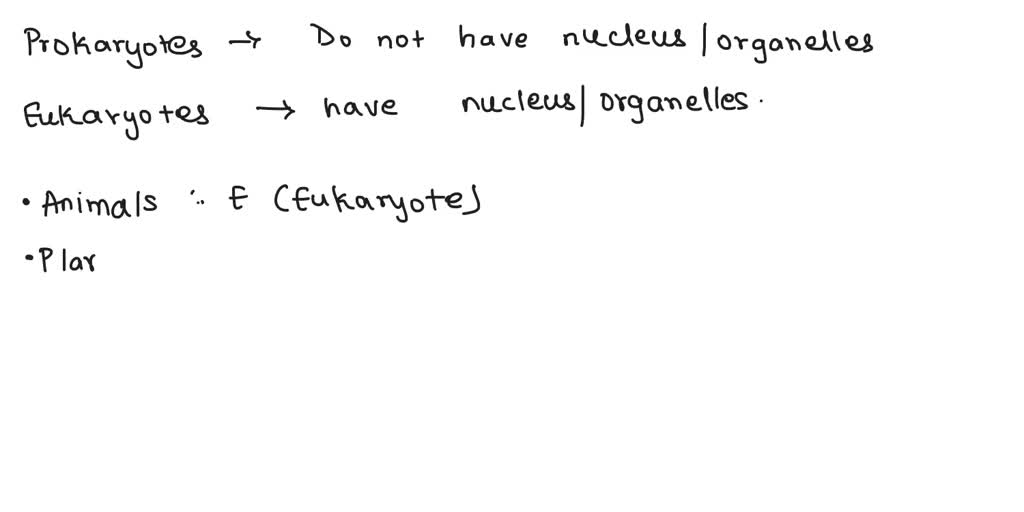 Prokaryotes → Do not have nucleus/organelles
Eukaryotes → have nucleus/organelles.
• Animals : E (Eukaryote)
• Plar